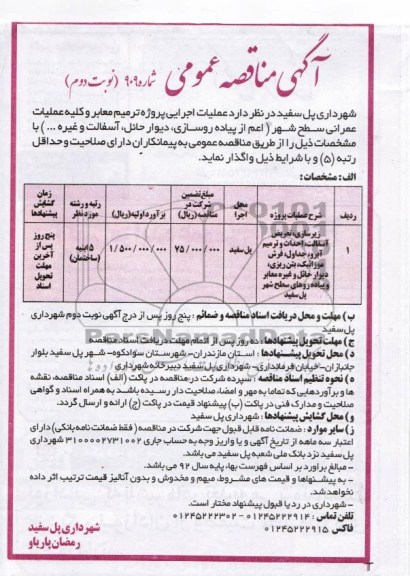 آگهی مناقصه عمومی شماره ۹۰۹ (نوبت دوم)
شهرداری پل سفید در نظر دارد عملیات اجرایی پروژه ترمیم معابر و کلیه عملیات
عمرانی سطح شهر ( اعم از پیاده روسازی، دیوار حائل، آسفالت و غیره ... ) با
مشخصات ذیل را از طریق مناقصه عمومی به پیمانکاران دارای صلاحیت و حداقل
رتبه (۵) و با شرایط ذیل واگذار نماید.
الف : مشخصات :
ردیف
شرح عملیات پروژه
محل اجرا
مبلغ تضمین شرکت در مناقصه (ریال)
برآورد اولیه (ریال)
رتبه و رشته مورد نظر
زمان گشایش پیشنهادها
۱
زیرسازی، تعریض
آسفالت، احداث و ترمیم
آبرو، جداول، فرش
موزائیک، بتن ریزی،
دیوار حائل و غیره معابر
و پیاده روهای سطح شهر
پل سفید
پل سفید
۷۵/۰۰۰/۰۰۰
۱/۵۰۰/۰۰۰/۰۰۰
۵ ابنیه (ساختمان)
پنج روز
پس از
آخرین
مهلت
تحویل
اسناد
ب) مهلت و محل دریافت اسناد مناقصه و ضمائم : پنج روز پس از درج آگهی نوبت دوم شهرداری
پل سفید
ج) مهلت تحویل پیشنهادها : ده روز پس از اتمام مهلت دریافت اسناد مناقصه
د) محل تحویل پیشنهادها : استان مازندران- شهرستان سوادکوه- شهر پل سفید بلوار
جانبازان-خیابان فرمانداری- شهرداری پل سفید دبیرخانه شهرداری
ه) نحوه تنظیم اسناد مناقصه : سپرده شرکت در مناقصه در پاکت (الف) اسناد مناقصه، نقشه
ها و برآوردهایی که تماما به مهر و امضاء صلاحیت دار رسیده باشد به همراه اسناد و گواهی
صلاحیت و مدارک فنی در پاکت (ب) پیشنهاد قیمت در پاکت (ج) ارائه و ارسال گردد.
و) محل گشایش پیشنهادها : شهرداری پل سفید
ز) سایر موارد : ضمانت نامه قابل قبول جهت شرکت در مناقصه ( فقط ضمانت نامه بانکی) دارای
اعتبار سه ماهه از تاریخ آگهی و یا واریز وجه به حساب جاری ۳۱۰۰۰۰۲۷۳۱۰۰۲ شهرداری
پل سفید نزد بانک ملی شعبه پل سفید می باشد.
- مبالغ برآورد بر اساس فهرست بها، پایه سال ۹۲ می باشد.
- به پیشنهادها و قیمت های مشروط، مبهم و مخدوش و بدون آنالیز قیمت ترتیب اثر داده
نخواهد شد.
- شهرداری در رد یا قبول پیشنهاد مختار است.
تلفن تماس : ۰۱۲۴۵۲۲۲۹۱۴ - ۰۱۲۴۵۲۲۲۳۰۲
فاکس ۰۱۲۴۵۲۲۲۹۱۵
شهرداری پل سفید
رمضان پاریاو